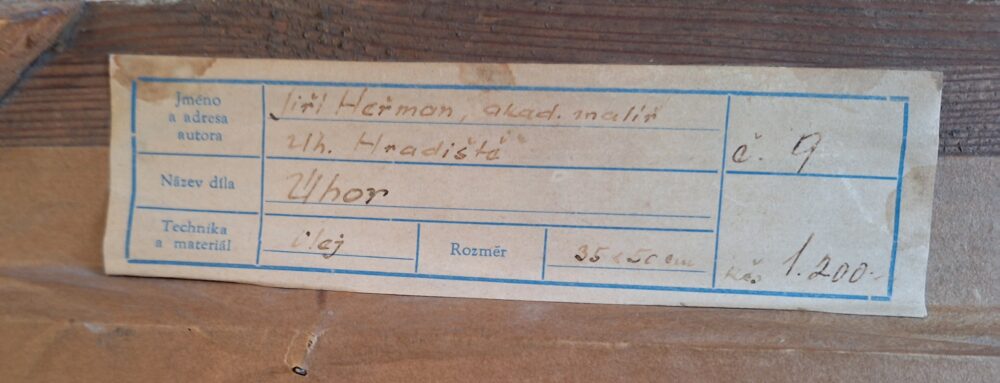 Jméno
a adresa
autora
Jiří Heřman, akad. malíř
Uh. Hradiště
č. 9
Název díla
Úhor
Technika
a materiál
olej
Rozměr
35 x 50 cm
Kčs 1.200.-